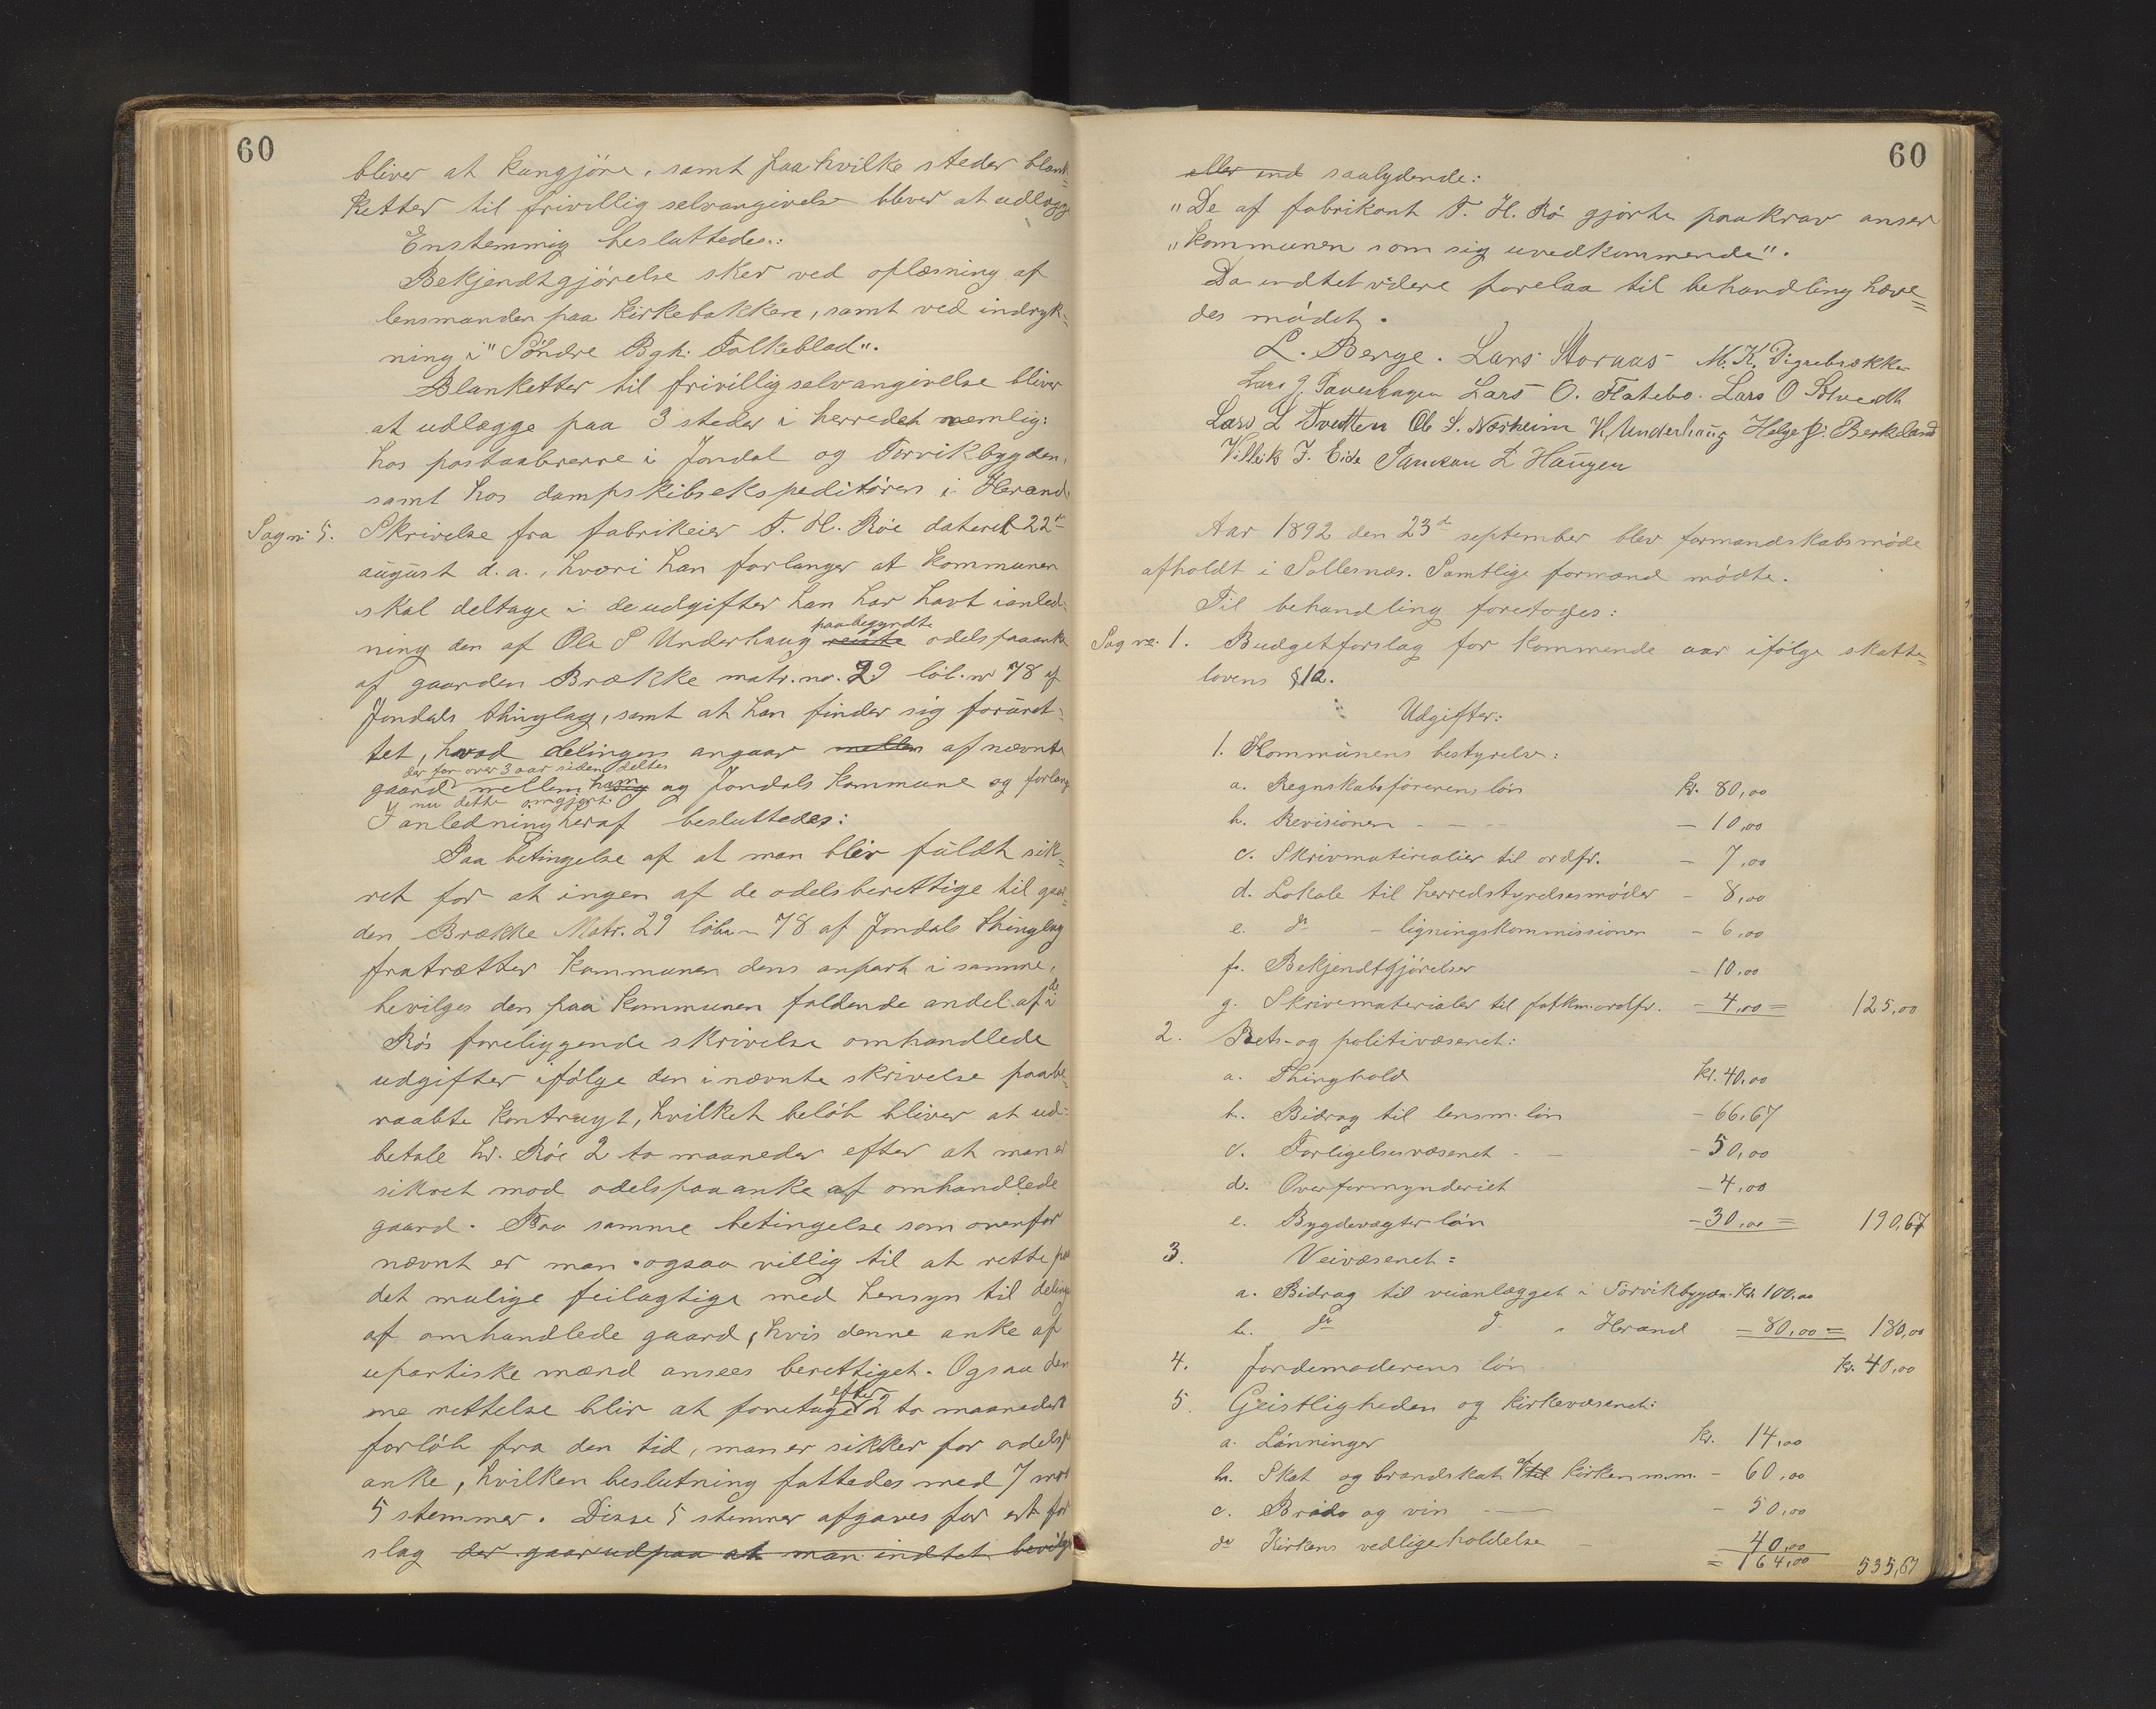 60
bliver at kungjöre, samt paa hvilke steder blan-
ketter til frivillig selvangivelse blever at udlægge
Enstemmig besluttedes:
Bekjendtgjörelse sker ved oplæsning af
lensmanden paa kirkebakkene, samt ved indryk-
ning i "Söndre Bgh. Folkeblad".
Blanketter til frivillig selvangivelse bliver
at udlægge paa 3 steder i herredet næmlig:
hos postaabnerne i Jondal og Torvikbygden,
samt hos dampskibsekspeditören i Herand.
Sag nr. 5. Skrivelse fra fabrikeier T. H. Röe dateret 22de
august d.a., hvori han forlanger at kommunen
skal deltage i de udgifter han har havt i anled-
paabegyndte
ning den af Ole P Underhaug reiste odelspaaanke
af gaarden Brække matr. no. 29 löb. nr 78 af
Jondals thinglag, samt at han finder sig foruret-
tet, hvad delingen angaar mellem af nævnte
der for over 3 aar siden deltes
gaard mellem ham og Jondals kommune og forlang
nu dette omgjort.
I anledning heraf besluttedes:
Paa betingelse af at man blir fuldt sik-
ret for at ingen af de odelsberettige til gaar-
den Brække Matr. 29 löbn 78 af Jondals thinglag
fratrætter kommunen dens anpart i samme,
bevilges den paa kommunen faldende andel af de i
Rös foreliggende skrivelse omhandlede
udgifter ifölge den i nævnte skrivelse paabe-
raabte kontragt, hvilket belöb bliver at ud-
betale hr. Röe 2 to maaneder efter at man er
sikret mod odelspaaanke af omhandlede
gaard. Paa samme betingelse som ovenfor
nævnt er man ogsaa villig til at rette paa
det mulige feilagtige med hensyn til delingen
af omhandlede gaard, hvis denne anke af
upartiske mænd ansees berettiget. Ogsaa den
efter
ne rettelse blir at foretage 2 to maaneders
forlöb fra den tid, man er sikker for odelsp
anke, hvilken beslutning fattedes med 7 mot
5 stemmer. Disse 5 stemmer afgaves for et for
slag der gaar ud paa at man indtet bevilge
60
eller ind saalydende:
"De af fabrikant T. H. Rö gjorte paakrav anser
"kommunen som sig uvedkommende".
Da indtet videre forelaa til behandling hæve-
des mödet.
L. Berge. Lars Storaas M. K. Digrebrække
Lars O. Flatebö. Lars O
Lars L Tvedten Ole S. Næsheim V. Underhaug Helge Berkeland
Villik J. Eide Samson L Haugen
Aar 1892 den 23de september blev formandskabsmöde
afholdt i Sollesnæs. Samtlige formænd mödte.
Til behandling foretoges:
Sag nr. 1. Budgetforslag for kommende aar ifölge skatte-
lovens §12.
Udgifter:
1. Kommunens bestyrelse:
a. Regnskabsförerens lön kr. 80,00
b. Revisionen - 10,00
c. Skrivmaterialier til ordfr. - 7,00
d. Lokale til herredstyrelsesmöder - 8,00
e. do - ligningskommissionen - 6,00
f. Bekjendtgjörelser - 10,00
g. Skrivematerialer til fatkm. ordfr. - 4,00 = 125,00
2. Rets- og politivæsenet:
a. Thinghold kr. 40,00
b. Bidrag til lensm. lön - 66,67
c. Forligelsesvæsenet - 50,00
d. Overformynderiet - 4,00
e. Bygdevægter lön - 30,00 = 190,67
3. Veivæsenet:
a. Bidrag til veianlægget i Torvikbygden. kr 100,00
b. do do " Herand = 80,00 = 180,00
4. Jordemoderens lön kr. 40,00
5. Geistligheden og kirkevæsenet:
a. Lönninger kr. 14,00
b. Skat og brandskat af til kirken m.m. - 60,00
c. Bröd og vin - 50,00
d. Kirkens vedligeholdelse - 40,00
= 164,00 535,67